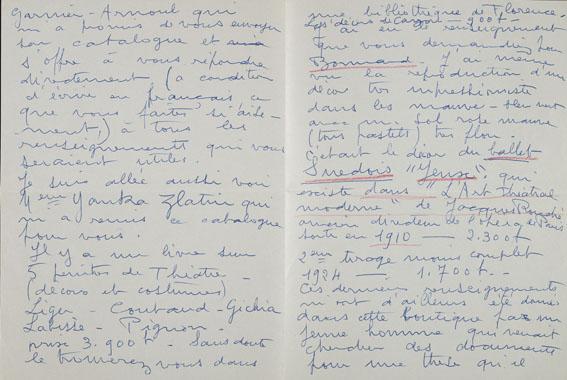 Garnier-Arnoul qui
m'a promis de vous envoyer
son catalogue et
s'offre à vous répondre
directement (à condition
d'écrire en français ce
que vous faites si aisé-
ment) à tous les
renseignements qui vous
seraient utiles.
Je suis allée aussi voir
Mme Yanka Zlatin qui
m'a remis ce catalogue
pour vous.
Il y a un livre sur
5 peintres de Théâtre -
(décors et costumes)
Léger - Coutaud - Gischia
Labisse - Pignon -
prix 3.900 f - Sans doute
le trouverez vous dans
une bibliothèque de Florence.
Les décors de - 900 f -
J'ai eu le renseignement
que vous demandiez pour
Bonnard. J'ai même
vu la reproduction d'un
décor très impressioniste
dans les mauve - bleu vert
avec un sol rose mauve
(très pastels) très flou.
C'était le décor du ballet
Suedois "Jeux" qui
existe dans "L'Art Théatral
moderne" de Jacques Rouché
ancien directeur de l'opéra de Paris
sorti en 1910 — 2.300 f
2ème tirage moins complet
1924 — 1.700 f. -
Ces derniers renseignements
m'ont d'ailleurs été donnés
dans cette boutique par un
jeune homme qui venait
chercher des documents
pour une thèse qu'il